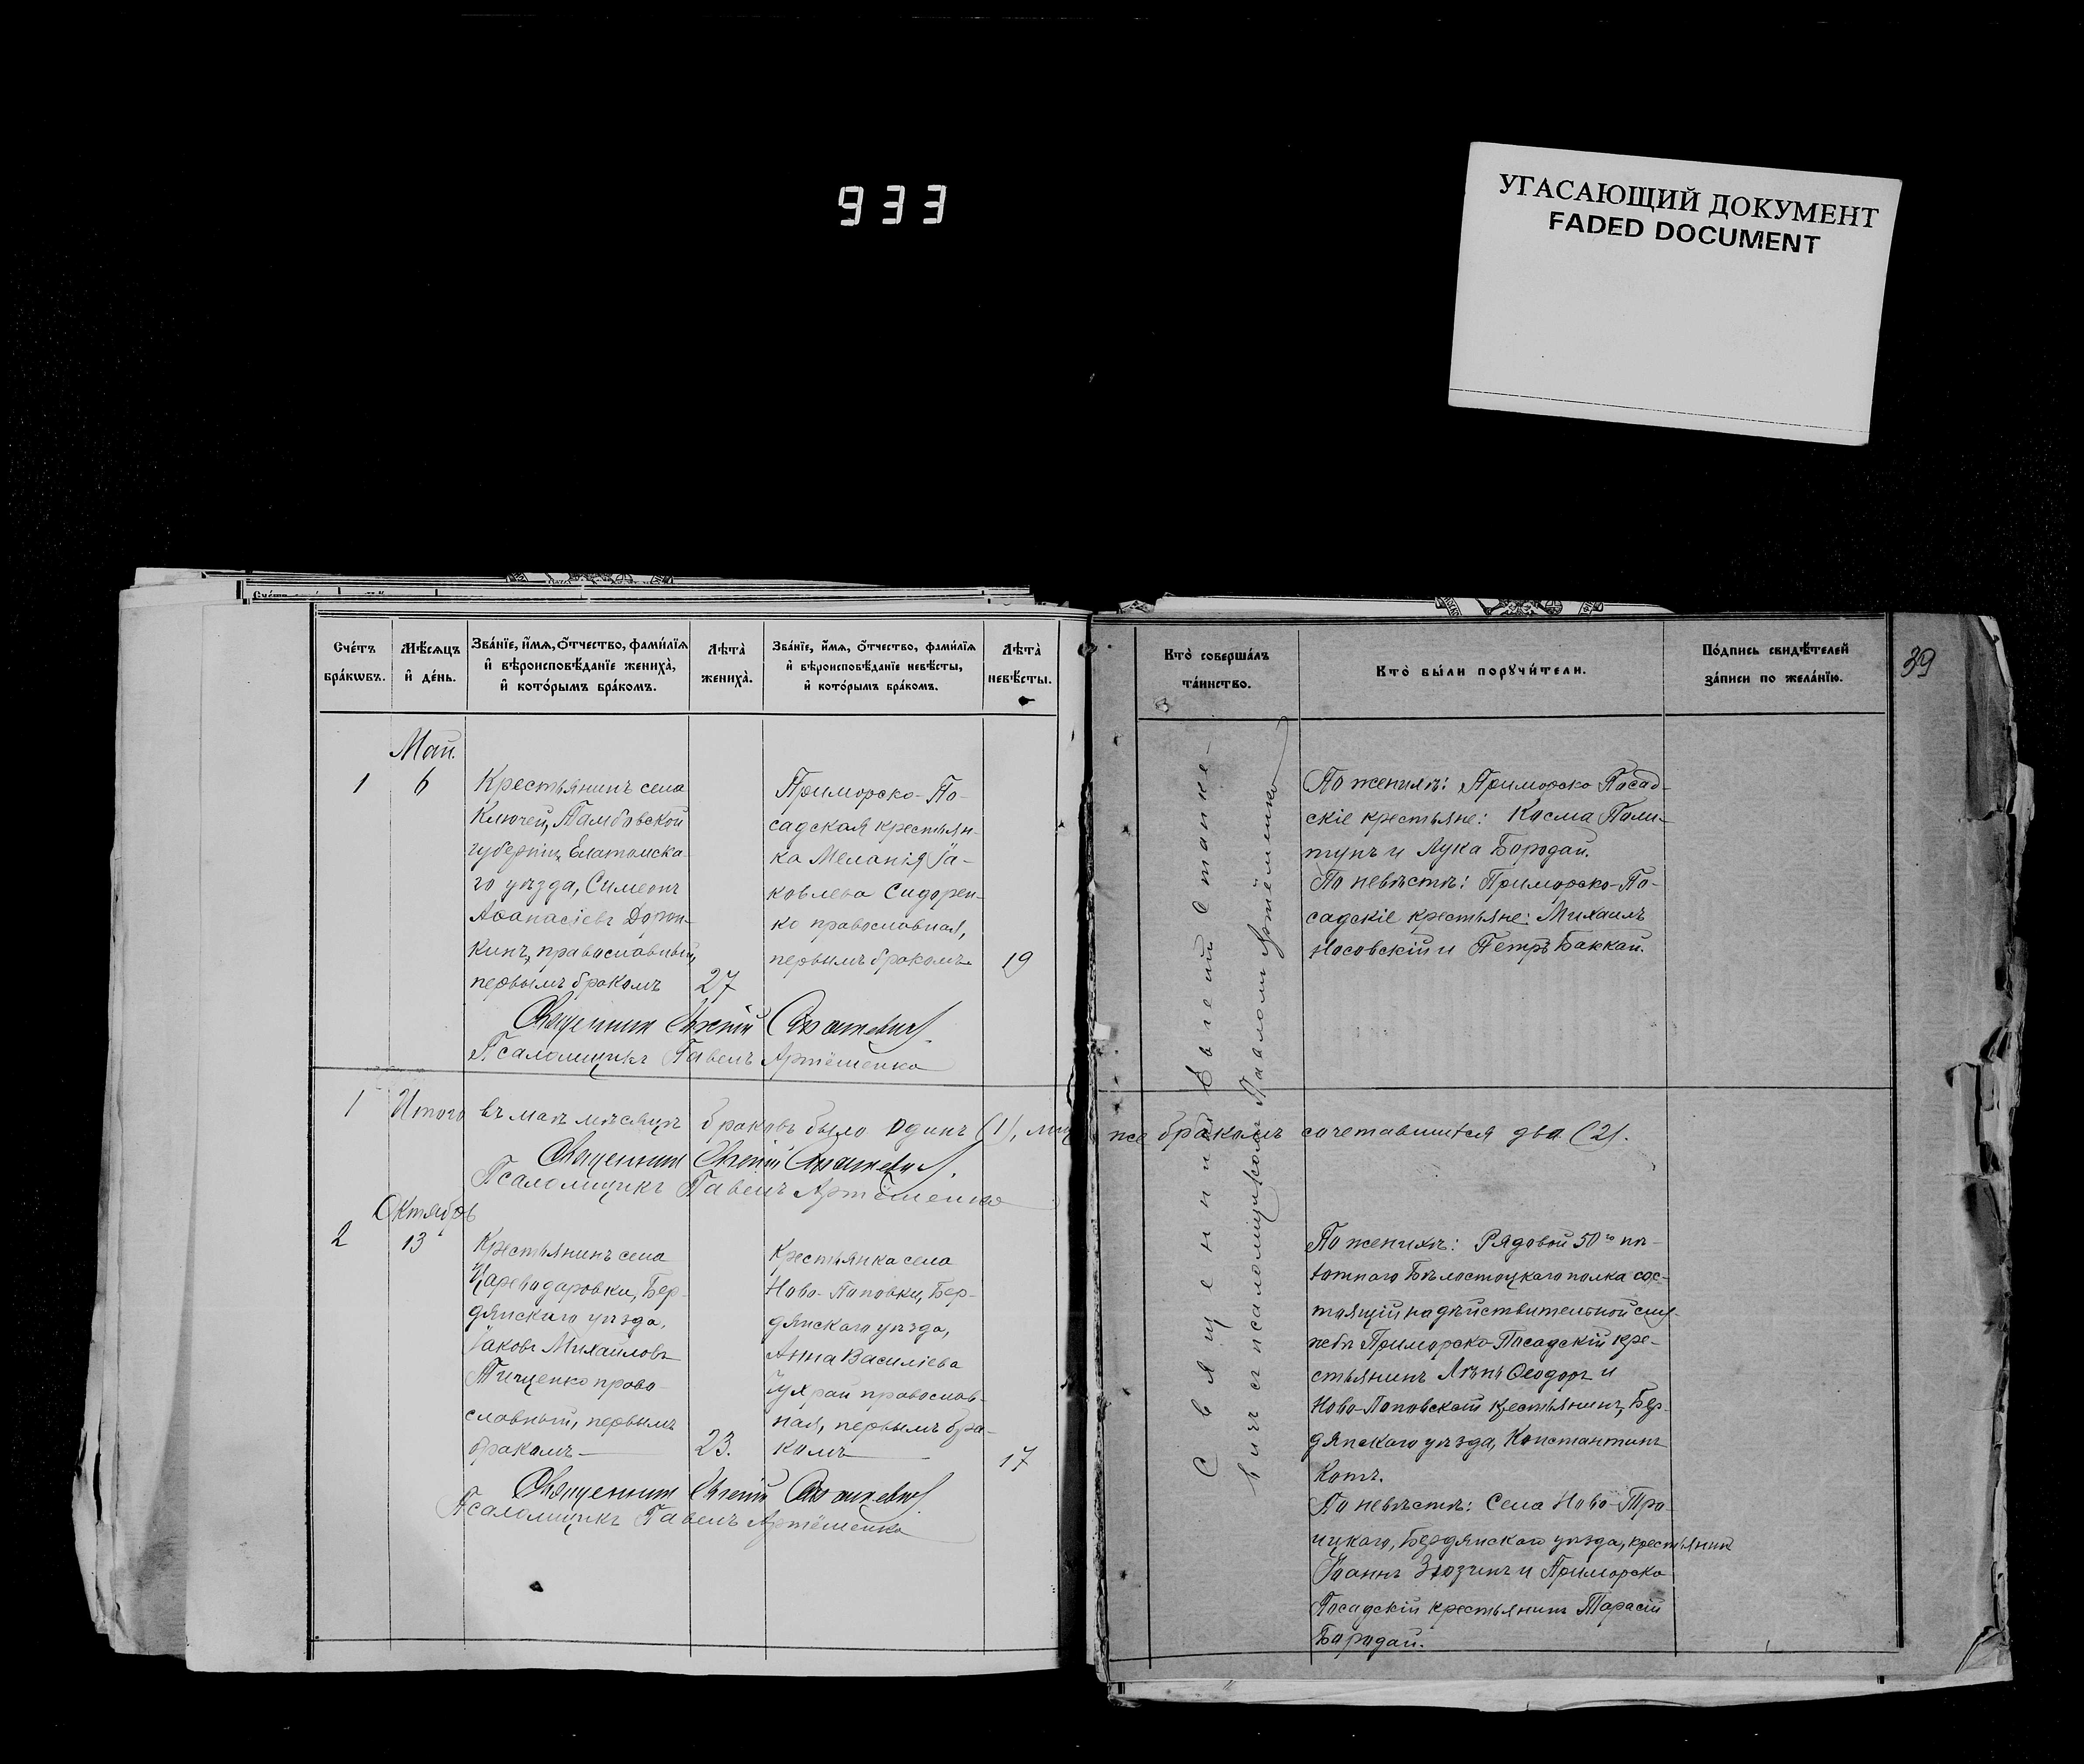 933
УГАСАЮЩИЙ ДОКУМЕНТ
FADED DOCUMENT
39
Сче́тъ бра́кѡвъ.
Мѣ́сѧцъ и҆ де́нь.
Зва́нїе, и҆́мѧ, ѻ҆́тчество, фами́лїѧ и҆ вѣроисповѣ́данїе жениха̀, и҆ кото́рымъ бра́комъ.
Лѣта̀ жениха̀.
Зва́нїе, и҆́мѧ, ѻ҆́тчество, фами́лїѧ и҆ вѣроисповѣ́данїе невѣ́сты, и҆ кото́рымъ бра́комъ.
Лѣта̀ невѣ́сты.
Кто̀ соверша́лъ та́инство.
Кто̀ бы́ли порꙋчи́тели.
По́дпись свидѣ́телей за́писи по жела́нїю.
Май.
1
6
Крестьянинъ села
Ключей, Тамбовской
губерніи, Елатомска-
го уѣзда, Симеонъ
Аѳанасіевъ
кинъ, православный,
первымъ бракомъ
27
Приморско-По-
садская крестьян-
ка Меланія Іа-
ковлева Сидорен-
ко православная,
первымъ бракомъ
19
Священникъ Евгеній
Псаломщикъ Павелъ Артёменко
Священникъ Евгеній
вичъ съ псаломщикомъ Павломъ Артёменко
По женихѣ: Приморско Посад-
скіе крестьяне: Косма Поли-
тунъ и Лука Бородай.
По невѣстѣ: Приморско-По-
садскіе крестьяне: Михаилъ
Носовскій и Петръ Баккай.
1 Итого въ маѣ мѣсяцѣ браковъ было одинъ (1),
же бракомъ сочетавшихся два (2).
Священникъ Евгеній
Псаломщикъ Павелъ Артёменко
Октябрь
2
13
Крестьянинъ села
Цареводаровки, Бер-
дянскаго уѣзда,
Іаковъ Михайловъ
Тищенко право-
славный, первымъ
бракомъ
23.
Крестьянка села
Ново-Поповки, Бер-
дянскаго уѣзда,
Анна Василіева
православ-
ная, первымъ бра-
комъ
17
Священникъ Евгеній
Псаломщикъ Павелъ Артёменко
По женихѣ: Рядовой 50го пѣ-
хотнаго Бѣлостоцкаго полка сос-
тоящій на дѣйствительной слу-
жбѣ Приморско-Посадскій кре-
стьянинъ Ѳеодоръ и
Ново-Поповской крестьянинъ, Бер-
дянскаго уѣзда, Константинъ
Котъ.
По невѣстѣ: Села Ново-Тро-
ицкаго, Бердянскаго уѣзда, крестьянинъ
Іоаннъ и Приморско
Посадскій крестьянинъ Тарасій
Бородай.